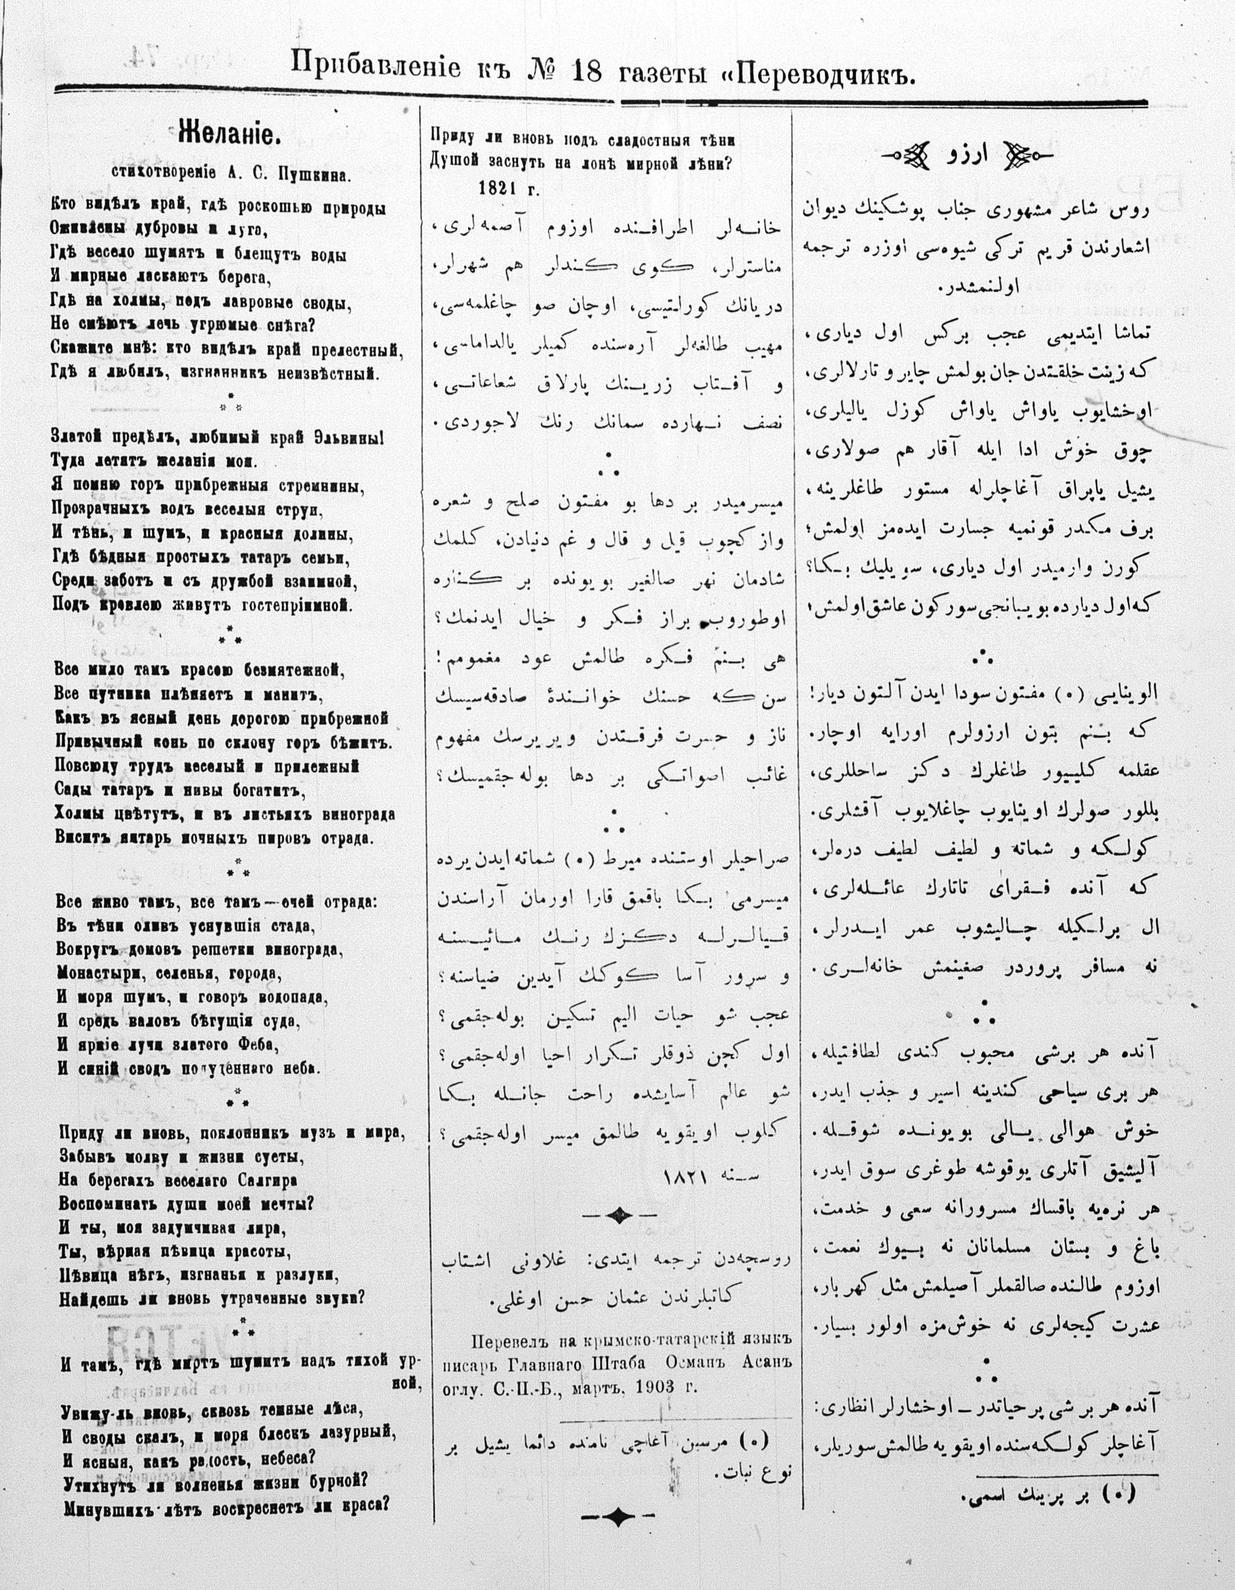 Прибавленіе къ № 18 газеты «Переводчикъ.
Желаніе.
стихотвореніе А. С. Пушкина.
Кто видѣлъ край, гдѣ роскошью природы
Оживлены дубровы и луга,
Гдѣ весело шумятъ и блещутъ воды
И мирные ласкаютъ берега,
Гдѣ на холмы, подъ лавровые своды,
Не смѣютъ лечь угрюмые снѣга?
Скажите мнѣ: кто видѣлъ край прелестный,
Гдѣ я любилъ, изгнанникъ неизвѣстный.
* * *
Златой предѣлъ, любимый край Эльвины!
Туда летятъ желанія мои.
Я помню горъ прибрежныя стремнины,
Прозрачныхъ водъ веселыя струи,
И тѣнь, и шумъ, и красныя долины,
Гдѣ бѣдныя простыхъ татаръ семьи,
Среди заботъ и съ дружбой взаимной,
Подъ кровлею живутъ гостепріимной.
* * *
Все мило тамъ красою безмятежной,
Все путника плѣняетъ и манитъ,
Какъ въ ясный день дорогою прибрежной
Привычный конь по склону горъ бѣжитъ.
Повсюду трудъ веселый и прилежный
Сады татаръ и нивы богатитъ,
Холмы цвѣтутъ, и въ листьяхъ винограда
Виситъ янтарь ночныхъ пировъ отрада.
* * *
Все живо тамъ, все тамъ—очей отрада:
Въ тѣни оливъ уснувшія стада,
Вокругъ домовъ решетки винограда,
Монастыри, селенья, города,
И моря шумъ, и говоръ водопада,
И средь валовъ бѣгущія суда,
И яркіе лучи златого Феба,
И синій сводъ полуденнаго неба.
* * *
Приду ли вновь, поклонникъ музъ и мира,
Забывъ молву и жизни суеты,
На берегахъ веселаго Салгира
Воспоминать души моей мечты?
И ты, моя задумчивая лира,
Ты, вѣрная пѣвица красоты,
Пѣвица нѣгъ, изгнанья и разлуки,
Найдешь ли вновь утраченные звуки?
* * *
И тамъ, гдѣ миртъ шумитъ надъ тихой ур-
ной,
Увижу-ль вновь, сквозь темные лѣса,
И своды скалъ, и моря блескъ лазурный,
И ясныя, какъ радость, небеса?
Утихнутъ ли волненья жизни бурной?
Минувшихъ лѣтъ воскреснетъ ли краса?
Приду ли вновь подъ сладостныя тѣни
Душой заснуть на лонѣ мирной лѣни?
1821 г.
ارزو
روس شاعر مشهوری جناب پوشكینك دیوان
اشعارندن قریم تركی شیوه‌سی اوزره ترجمه
اولنمشدر.
تماشا ایتدیمی عجب بركس اول دیاری،
كه زینت خلقتدن جان بولمش چایر و تارلالری،
اوخشایوب یاواش یاواش كوزل یالیلری،
چوق خوش ادا ایله آقار هم صولاری،
یشیل یاپراق آغاچلرله مستور طاغلرینه،
برف مكدر قونمیه جسارت ایده‌مز اولمش؛
كورن وارمیدر اول دیاری، سویلیك بكا؟
كه اول دیارده بو یبانجی سوركون عاشق اولمش؛
الوینایی (٠) مفتون سودا ایدن آلتون دیار!
كه بنم بتون ارزولرم اورایه اوچار.
عقلمه كلییور طاغلرك دكز ساحللری،
بللور صولرك اوینایوب چاغلایوب آقشلری.
كولكه و شماته و لطیف لطیف دره‌لر،
كه آنده فقرای تاتارك عائله‌لری،
ال برلكیله چالیشوب عمر ایدرلر،
نه مسافر پروردر صغینمش خانه‌لری.
آنده هر برشی محبوب كندی لطافتیله،
هر بری سیاحی كندینه اسیر و جذب ایدر،
خوش هوالی یالی بویونده شوقله.
آلیشیق آتلری یوقوشه طوغری سوق ایدر،
هر نره‌یه باقساك مسرورانه سعی و خدمت،
باغ و بستان مسلمانان نه بیوك نعمت،
اوزوم طالنده صالقملر آصیلمش مثل كهربار،
عشرت كیجه‌لری نه خوش‌مزه اولور بسیار.
آنده هر بر شی پر حیاتدر ـ اوخشارلر انظاری:
آغاچلر كولكه‌سنده اویقویه طالمش سوریلر،
(٠) بر پرینك اسمی.
خانه‌لر اطرافنده اوزوم آصمه‌لری،
مناسترلر، كوی كندلر هم شهرلر،
دریانك كورلتیسی، اوچان صو چاغلمه‌سی،
مهیب طالغه‌لر آره‌سنده كمیلر یالداماسی،
و آفتاب زرینك پارلاق شعاعاتی،
نصف نهارده سمانك رنك لاجوردی.
میسرمیدر بر دها بو مفتون صلح و شعره
واز كچوب قیل و قال و غم دنیادن، كلمك
شادمان نهر صالغیر بویونده بر كناره
اوطوروب براز فكر و خیال ایدنمك؟
هی بنم فكره طالمش عود مغمومم!
سن كه حسنك خوانندهٔ صادقه‌سیسك
ناز و حسرت فرقتدن ویریرسك مفهوم
غائب اصواتكی بر دها بوله‌جقمیسك؟
صراحیلر اوستنده میرط (٠) شماته ایدن یرده
میسرمی بكا باقمق قارا اورمان آراسندن
قیالرله دكزك رنك مائیسنه
و سرور آسا كوكك آیدین ضیاسنه؟
عجب شو حیات الیم تسكین بوله‌جقمی؟
اول كچن ذوقلر تكرار احیا اوله‌جقمی؟
شو عالم آسایشده راحت جانله بكا
كیلوب اویقویه طالمق میسر اوله‌جقمی؟
سنه ١٨٢١
روسچه‌دن ترجمه ایتدی: غلاونی اشتاب
كاتبلرندن عثمان حسن اوغلی.
Перевелъ на крымско-татарскій языкъ
писарь Главнаго Штаба Османъ Асанъ
оглу. С.-П.-Б., мартъ, 1903 г.
(٠) مرسین آغاچی نامنده دائما یشیل بر
نوع نبات.